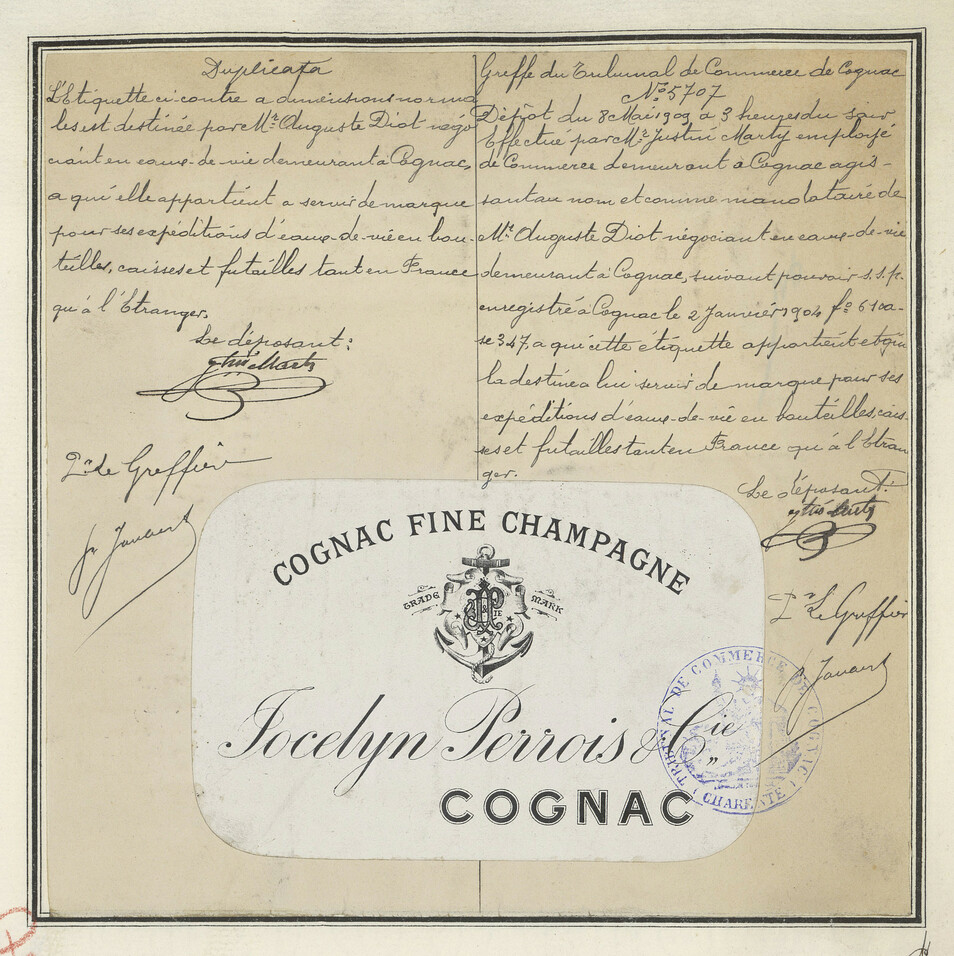 Duplicata
L'Etiquette ci-contre a dimensions norma
les est destinée par Mr. Auguste Diot négo
ciant en eaux-de-vie demeurant à Cognac,
a qui elle appartient a servir de marque
pour ses expéditions d'eaux-de-vie en bou-
teilles, caisses et futailles tant en France
qu'à l'Etranger.
Le déposant:
Le Greffier
Greffe du Tribunal de Commerce de Cognac
No. 5707
Dépôt du 8 Mai 1909 à 3 heures du soir
Effectué par Mr. Justin Marty employé
de Commerce demeurant à Cognac agis-
sant au nom et comme mandataire de
Mr. Auguste Diot négociant en eaux-de-vie
demeurant à Cognac, suivant pouvoir s.s.p.
enregistré à Cognac le 2 Janvier 1904 fo 61 ca-
se 347, a qui cette étiquette appartient et qui
la destine a lui servir de marque pour ses
expéditions d'eaux-de-vie en bouteilles, cais-
ses et futailles tant en France qu'à l'Etran
ger.
Le déposant:
Le Greffier
COGNAC FINE CHAMPAGNE
TRADE MARK
Jocelyn Perrois & Cie
COGNAC
TRIBUNAL DE COMMERCE DE COGNAC
CHARENTE